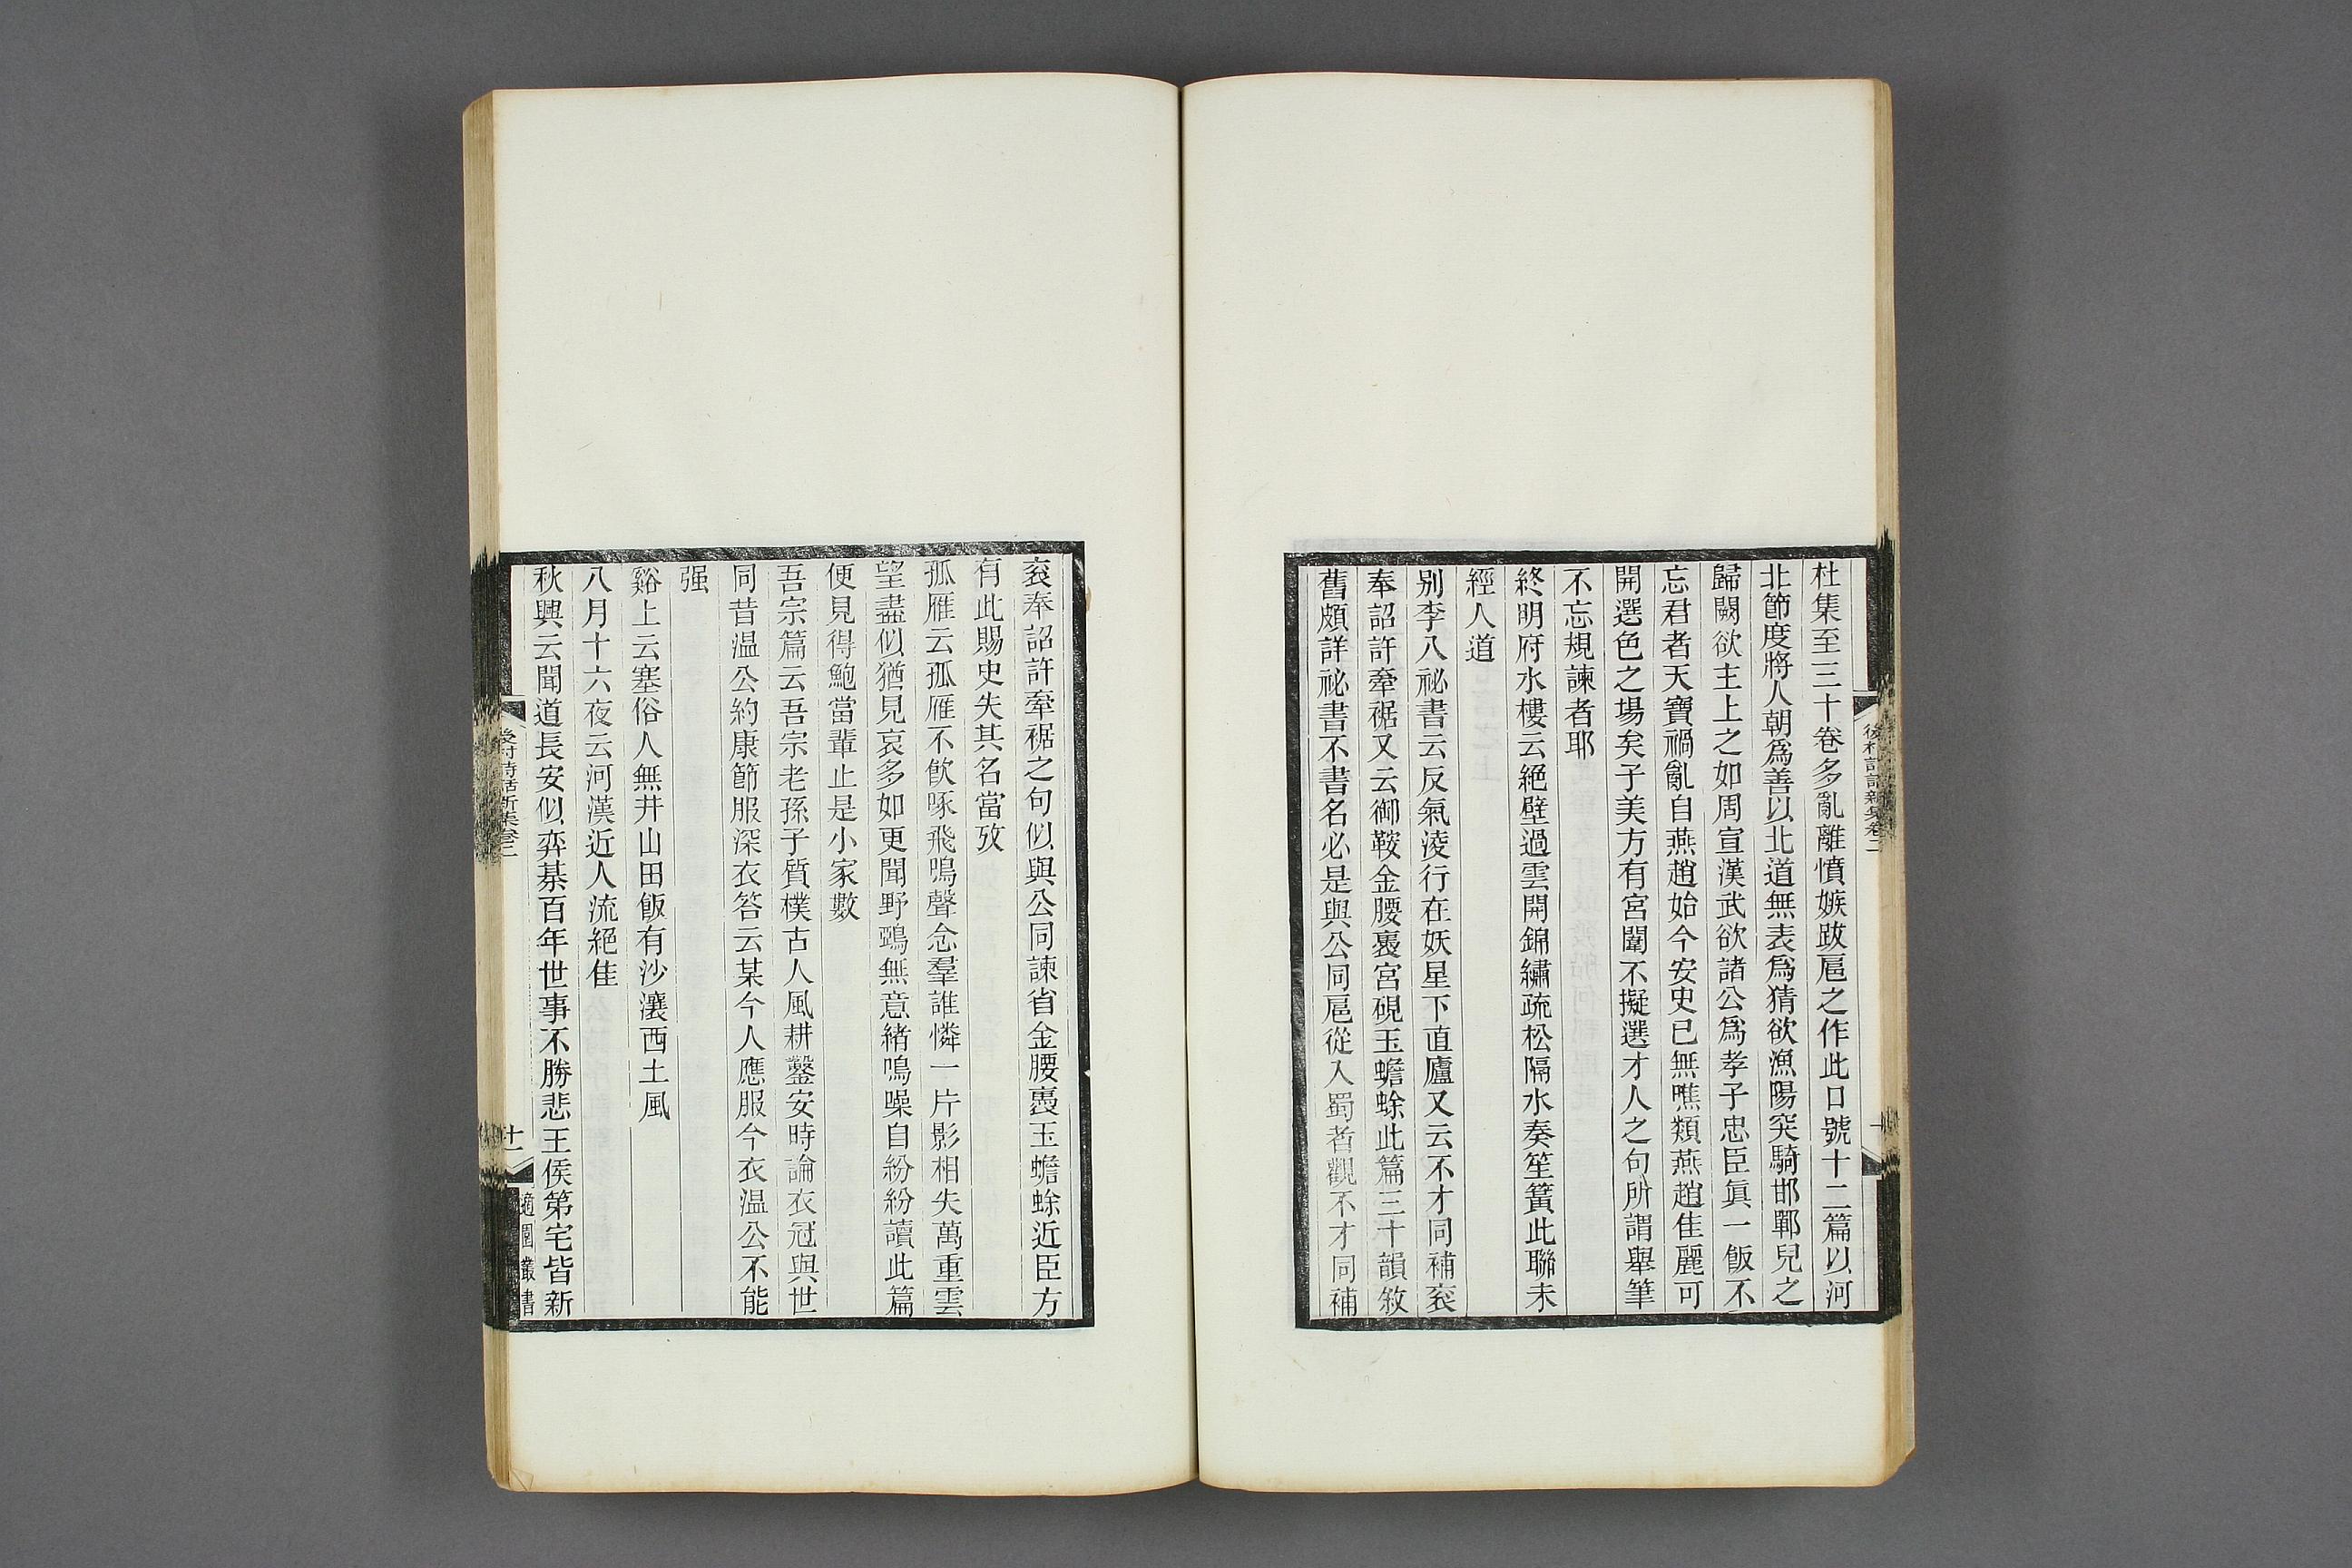 杜集至三十卷多亂離憤嫉跋扈之作此口號十二篇以河
北節度將人朝爲善以北道無表爲猜欲漁陽突騎邯鄲兒之
歸闕欲主上之如周宣漢武欲諸公爲孝子忠臣眞一飯不
忘君者天寶禍亂自燕趙始今安史已無噍類燕趙佳麗可
開選色之場矣子美方有宮闈不擬選才人之句所謂舉筆
不忘規諫者耶
終明府水樓云絕壁過雲開錦繡疏松隔水奏笙簧此聯未
經人道
別李八祕書云反氣淩行在妖星下直廬又云不才同補衮
奉詔許牽裾又云御鞍金腰褭宮硯玉蟾蜍此篇三十韻敘
舊頗詳祕書不書名必是與公同扈從入蜀者觀不才同補
衮奉詔許牽裾之句似與公同諫省金腰褭玉蟾蜍近臣方
有此賜史失其名當攷
孤雁云孤雁不飲啄飛鳴聲念羣誰憐一片影相失萬重雲
望盡似猶見哀多如更聞野鵶無意緒鳴噪自紛紛讀此篇
便見得鮑當輩止是小家數
吾宗篇云吾宗老孫子質樸古人風耕鑿安時論衣冠與世
同昔温公約康節服深衣答云某今人應服今衣温公不能
强
谿上云塞俗人無井山田飯有沙瀼西土風
八月十六夜云河漢近人流絕佳
秋興云聞道長安似弈棊百年世事不勝悲王侯第宅皆新
後村詩話新集卷二
十一
適園叢書